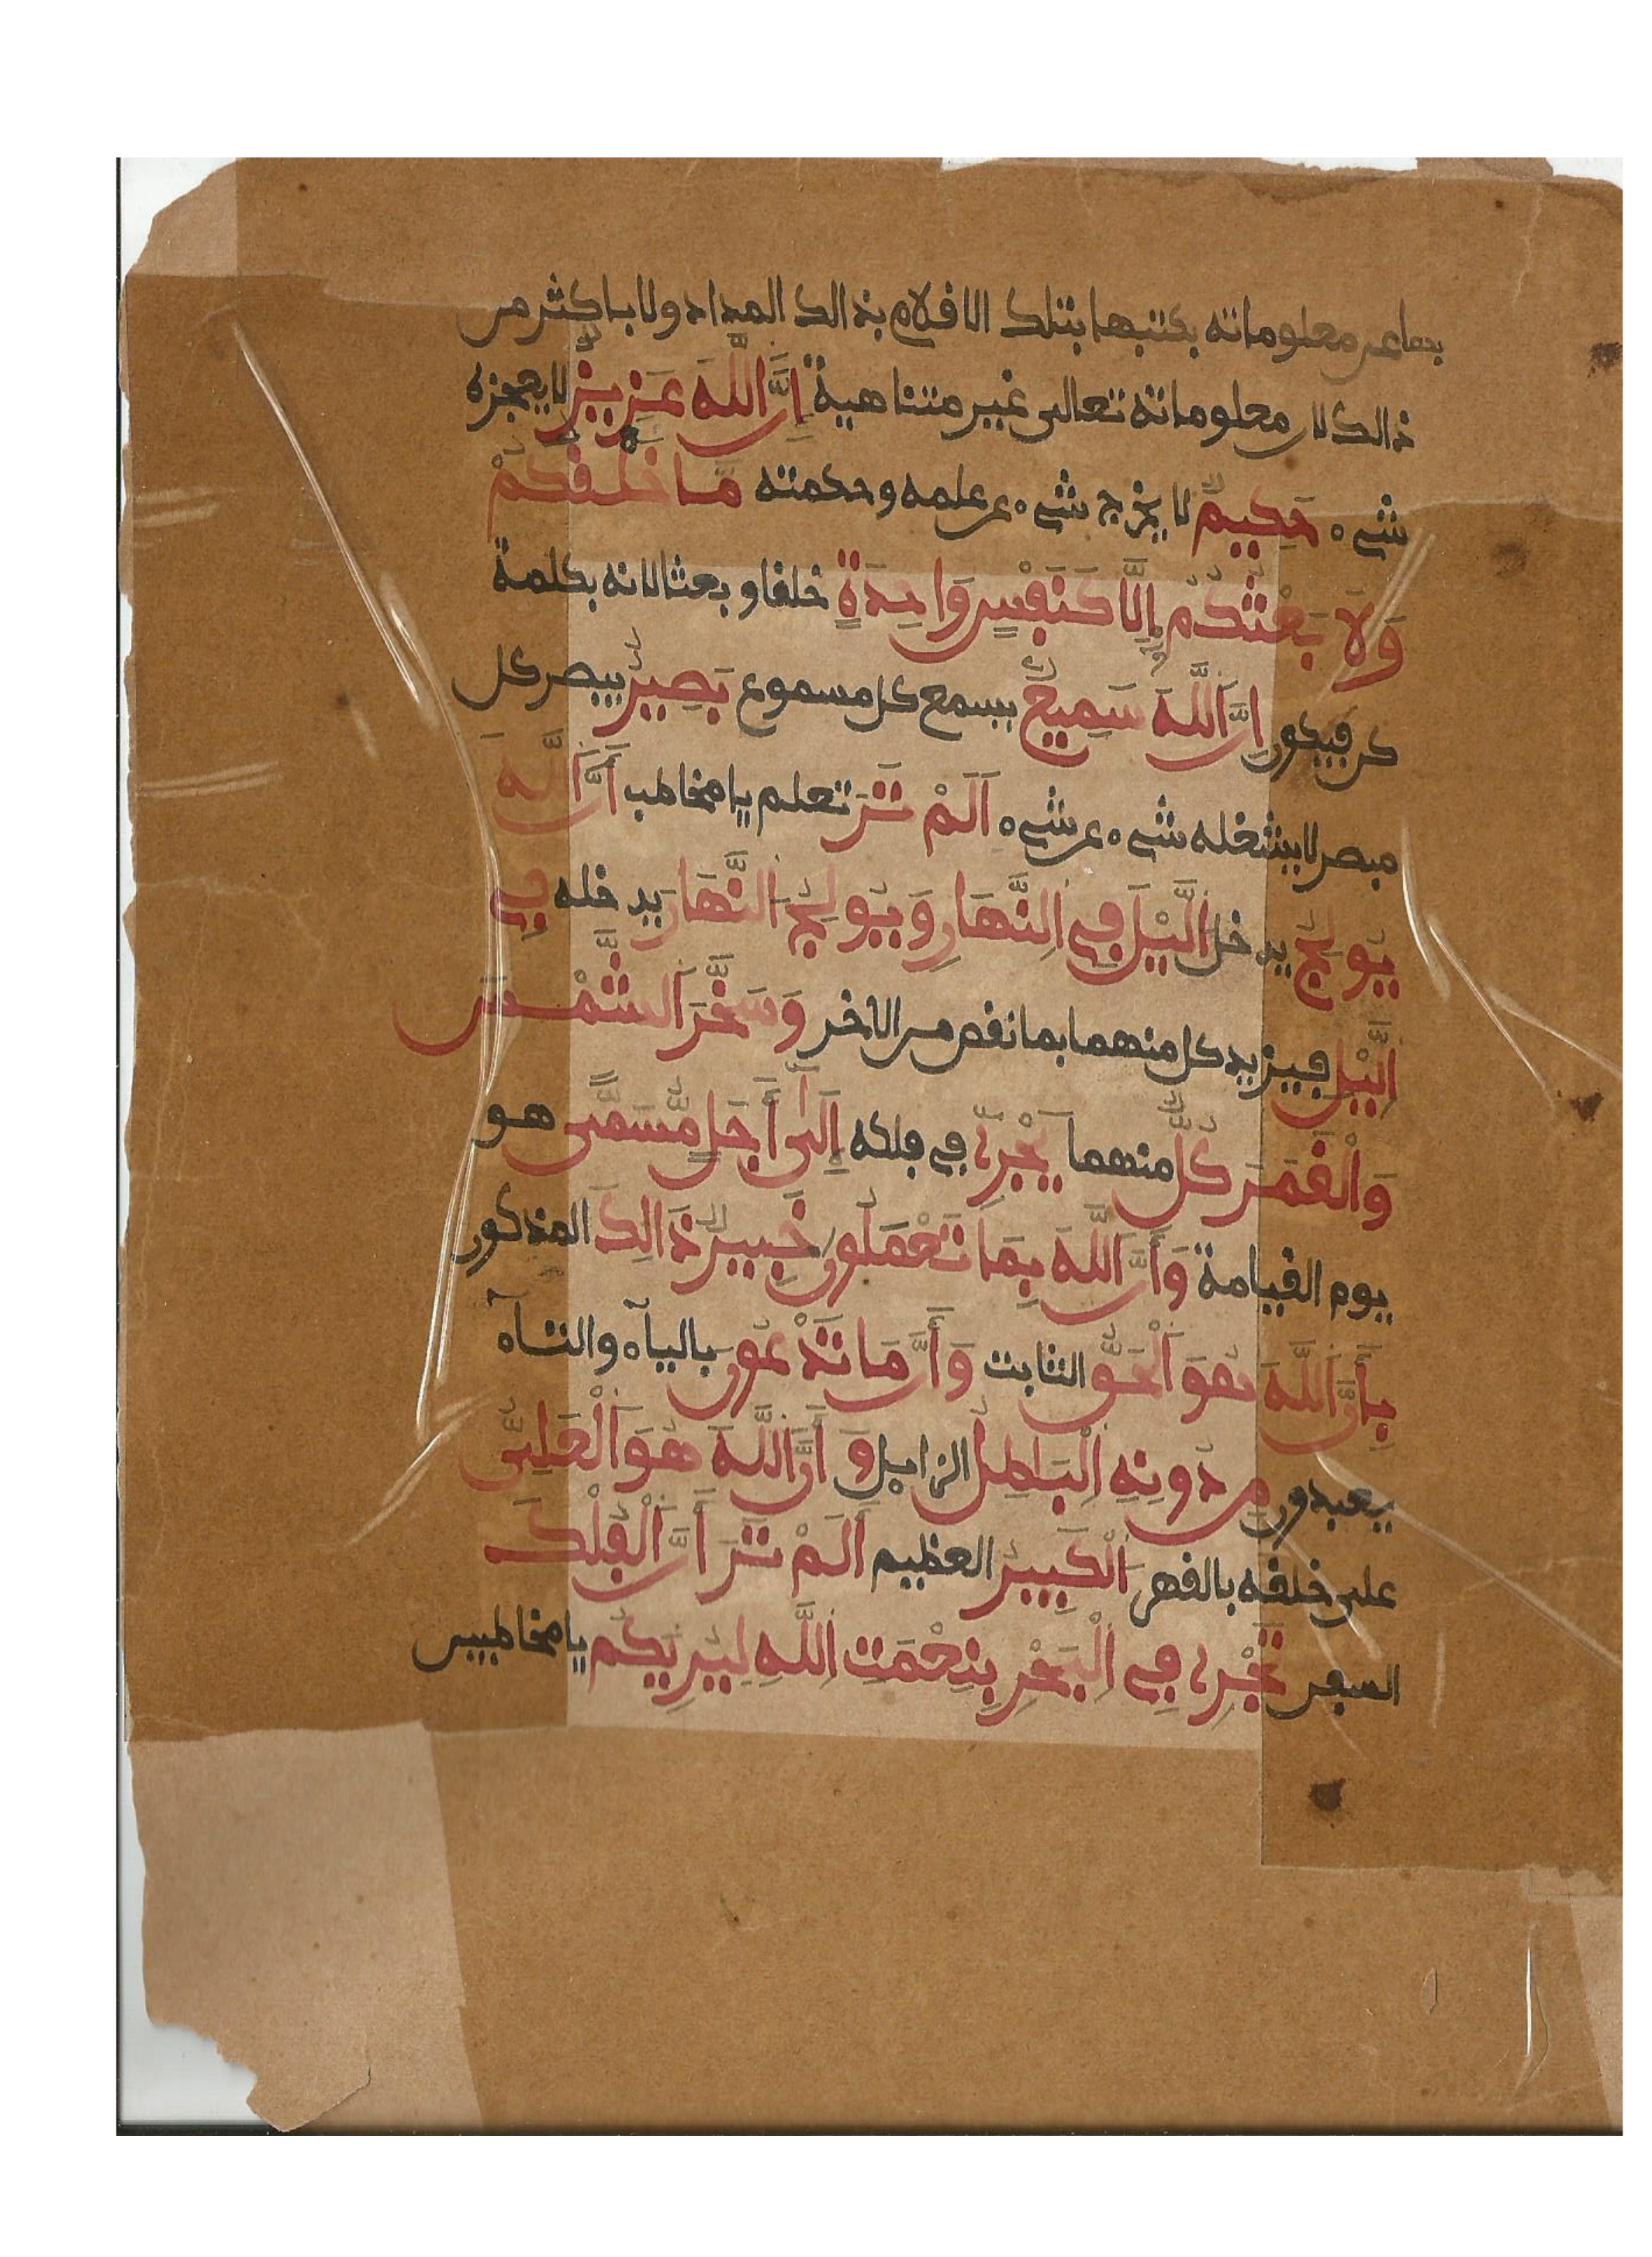 بها عن معلوماته بكتبها بتلك الاقلام بذالك المداد ولا باكثر من
ذالك لان معلوماته تعالى غير متناهية اِنَّ اَللَّهَ عَزِيزٌ لا يعجزه
شےء حَكِيمٌ لا يخرج شےء عن علمه وحكمته مَّا خَلْقُكُمْ
وَلَا بَعْثُكُمُ إِلَّا كَنَفْسٍ وَاحِدَةٍ خلقا وبعثا لانه بكلمة
كن فيكون اِنَّ اَللَّهَ سَمِيعٌ يسمع كل مسموع بَصِيرٌ يبصر كل
مبصر لا يشغله شےء عن شےء اَلَمْ تَرَ تعلم يا مخاطب أَنَّ اَللَّهَ
يُولِجُ يدخل اُلَّيْلَ فِے اِلنَّهَارِ وَيُولِجُ اُلنَّهَارَ يدخله فِے
اِلَّيْلِ فيزيد كل منهما بما نقص من الاخر وَسَخَّرَ اَلشَّمْسَ
وَالْقَمَرَ كُلٌّ منهما يَجْرِے في فلكه إِلَىٰ أَجَلٍ مُّسَمّىً هو
يوم القيامة وَأَنَّ اَللَّهَ بِمَا تَعْمَلُونَ خَبِيرٌ ذَالِكَ المذكور
بِأَنَّ اَللَّهَ هُوَ اَلْحَقُّ الثابت وَأَنَّ مَا تَدْعُونَ بالياء والتاء
يعبدون مِن دُونِهِ اِلْبَاطِلُ الزايل وَأَنَّ اَللَّهَ هُوَ اَلْعَلِىُّ
على خلقه بالقهر اَلْكَبِيرُ العظيم اَلَمْ تَرَ أَنَّ اَلْفُلْكَ
السفن تَجْرِے فِے اِلْبَحْرِ بِنِعْمَتِ اِللَّهِ لِيُرِيَكُم يا مخاطبين